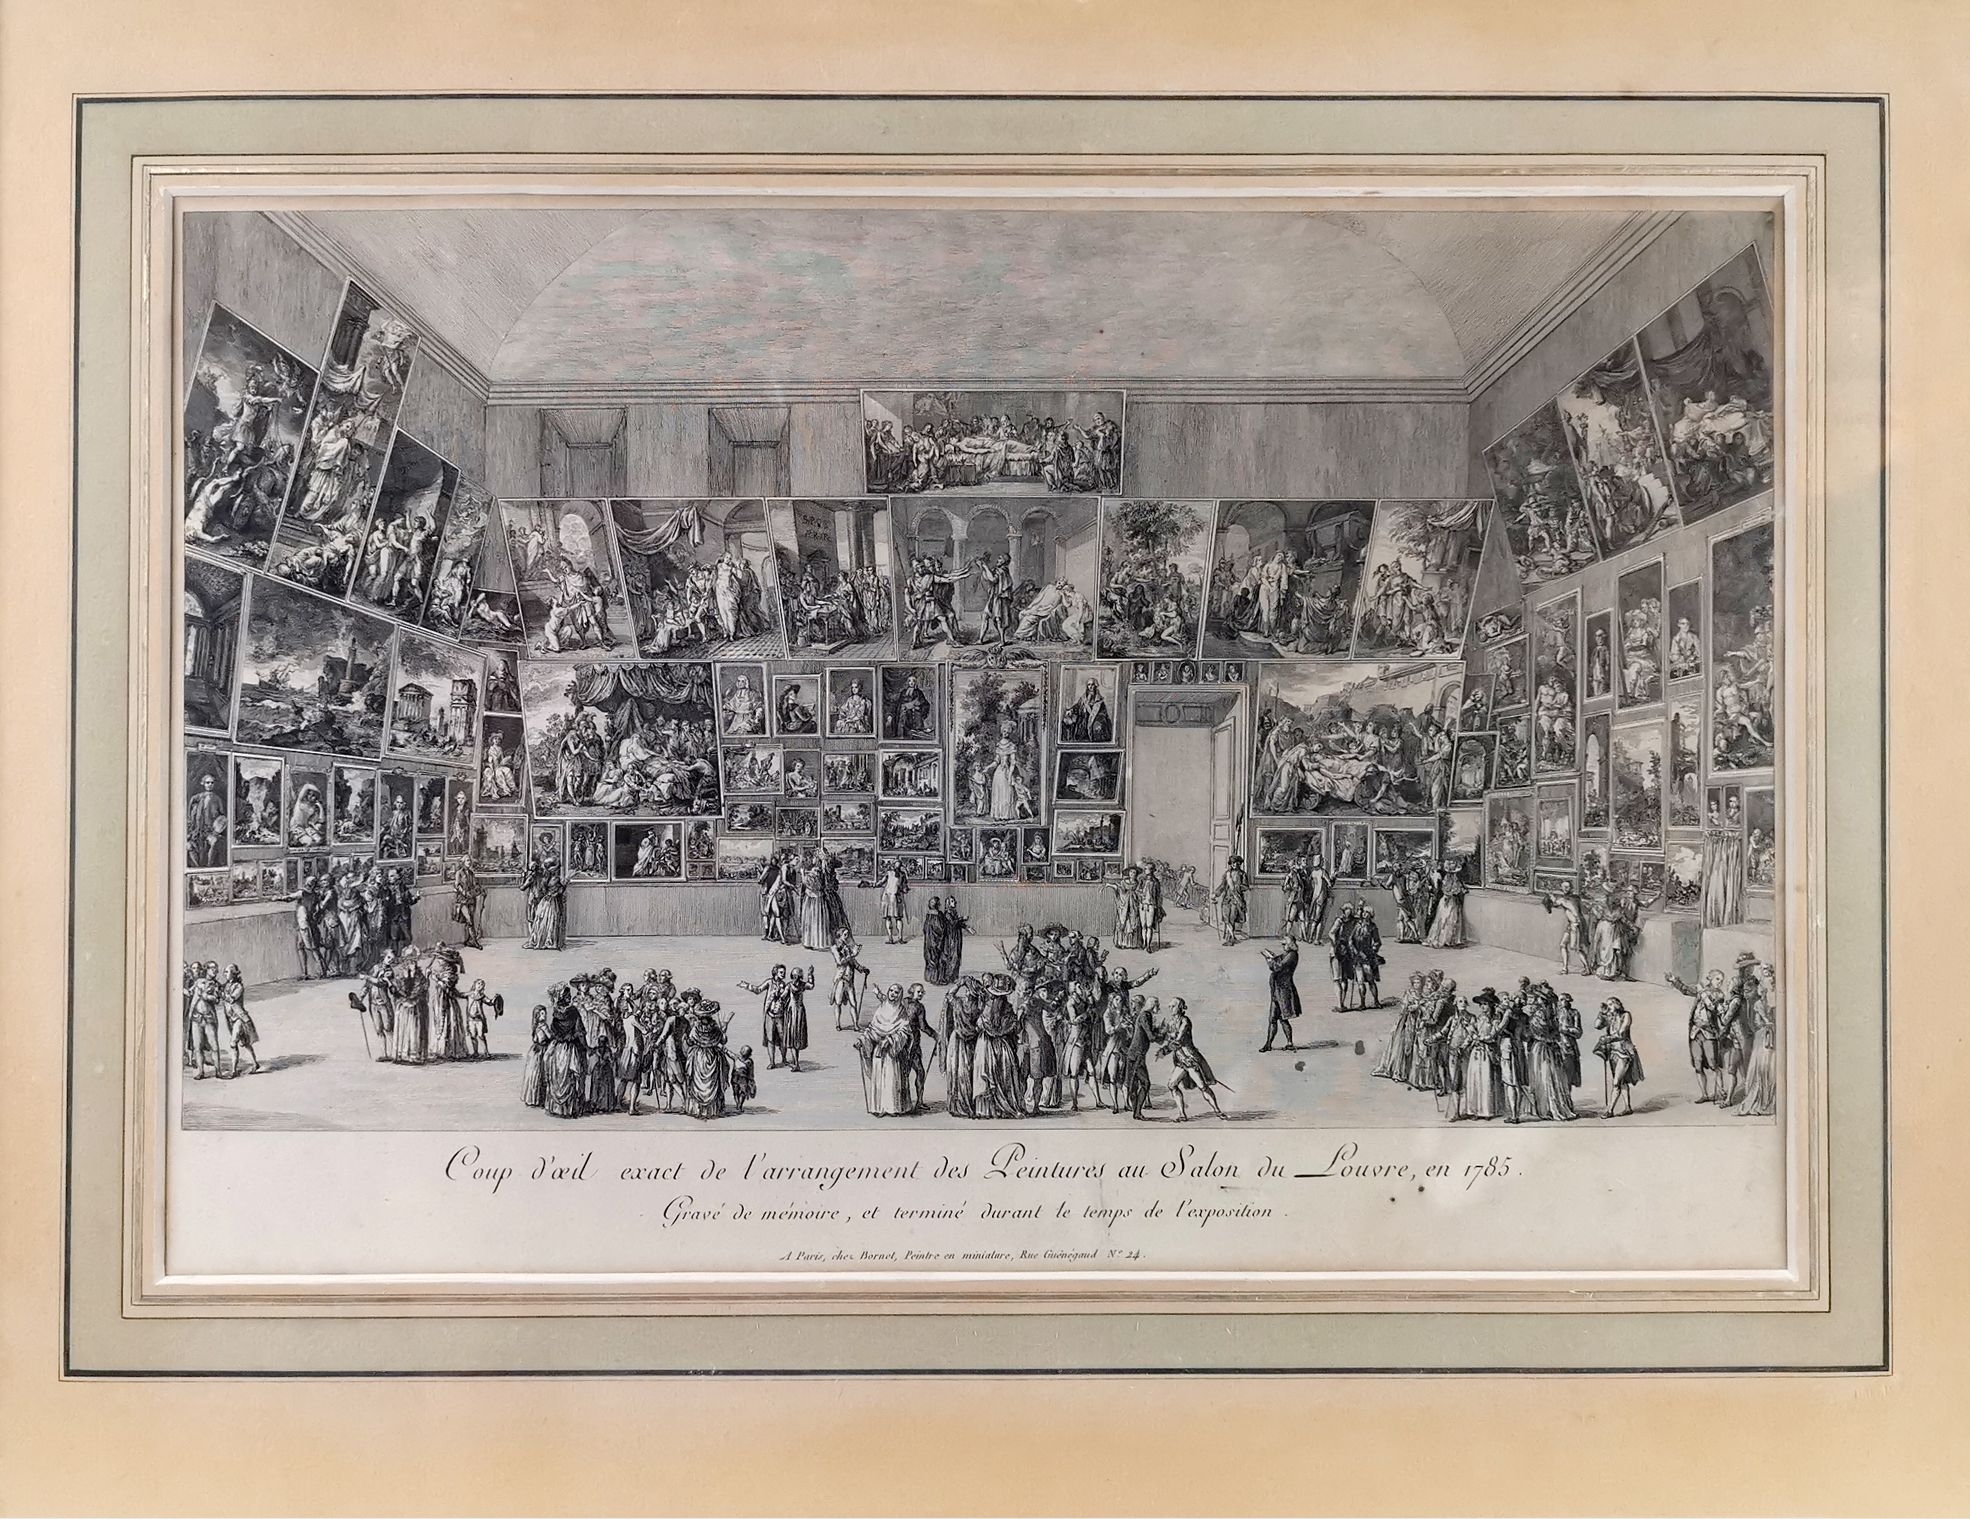 Coup d'œil exact de l'arrangement des Peintures au Salon du Louvre, en 1785.
Gravé de mémoire, et terminé durant le temps de l'exposition.
A Paris, chez Bornet, Peintre en miniature, Rue Guénégaud N° 24.